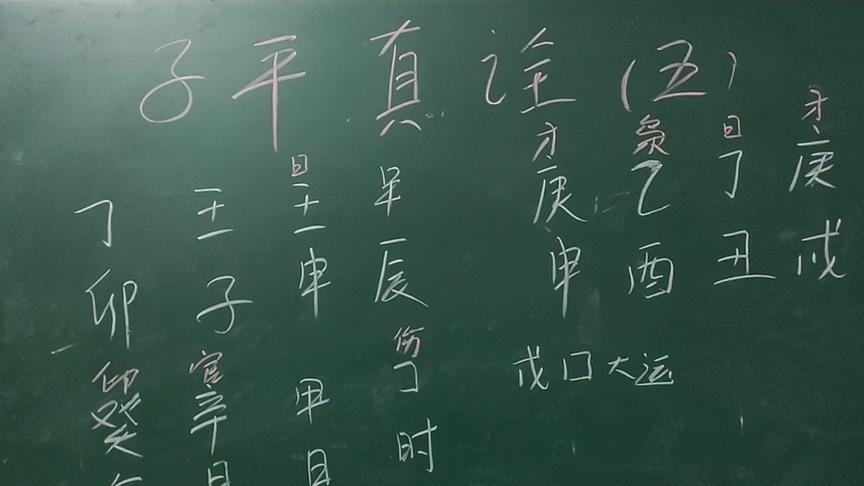 子平真诠（五）
才 枭 日 才
庚 乙 丁 庚
申 酉 丑 戌
戌口大运
日
丁 壬 壬 甲
卯 子 申 辰
印 官 伤
癸 辛 甲 丁
年 月 日 时